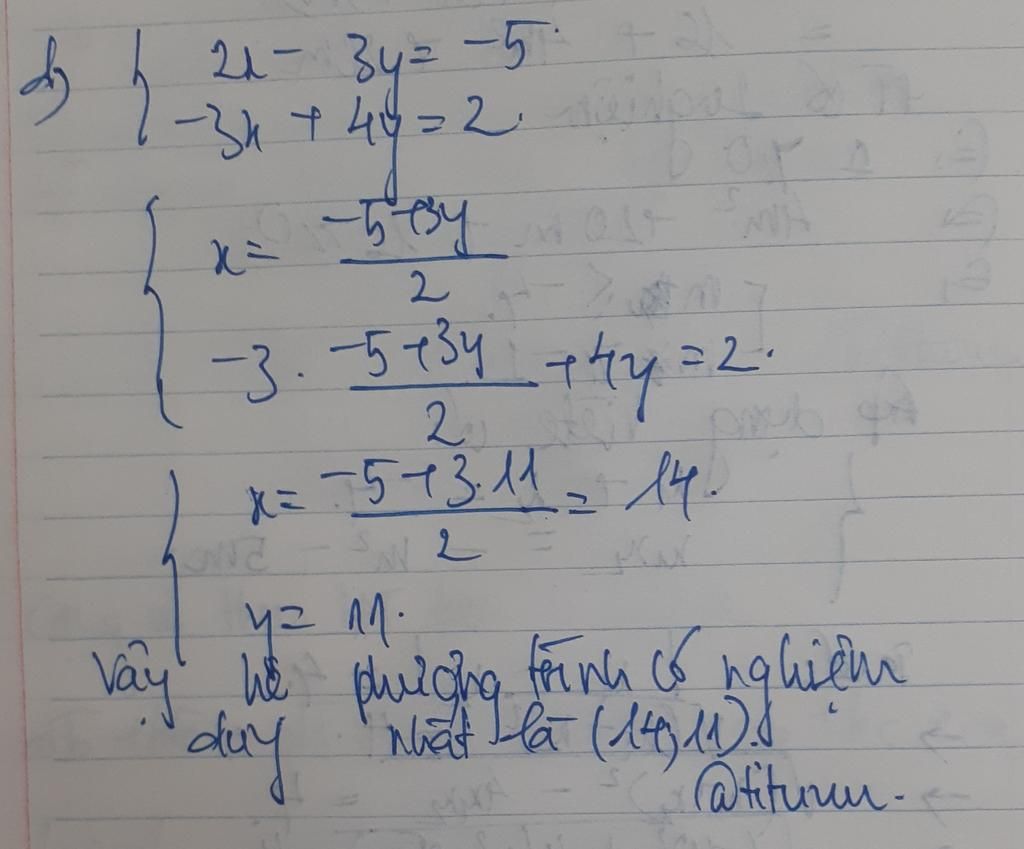 d) { 2x - 3y = -5.
-3x + 4y = 2.
{ x = (-5+3y)/2
-3 . (-5+3y)/2 + 4y = 2.
{ x = (-5+3.11)/2 = 14.
y = 11.
Vậy hệ phương trình có nghiệm
duy nhất là (14;11).
@titunu.